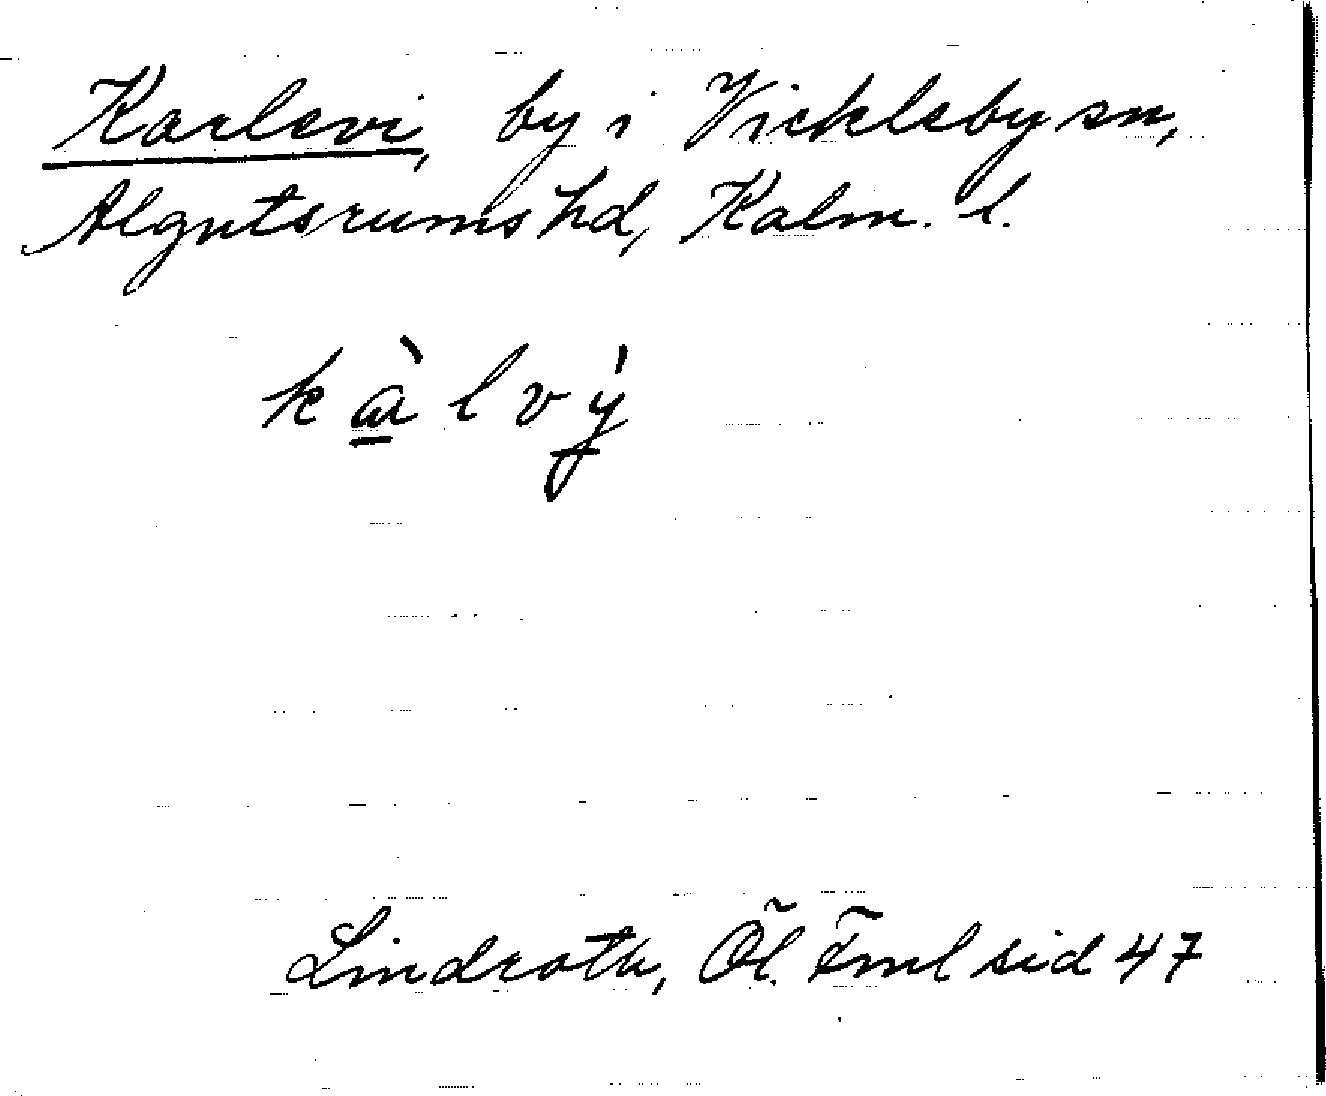 Karlevi, by i Vickleby sn,
Algutsrums hd, Kalm. l.
kàlvý
Lindroth, Öl. Fml sid 47